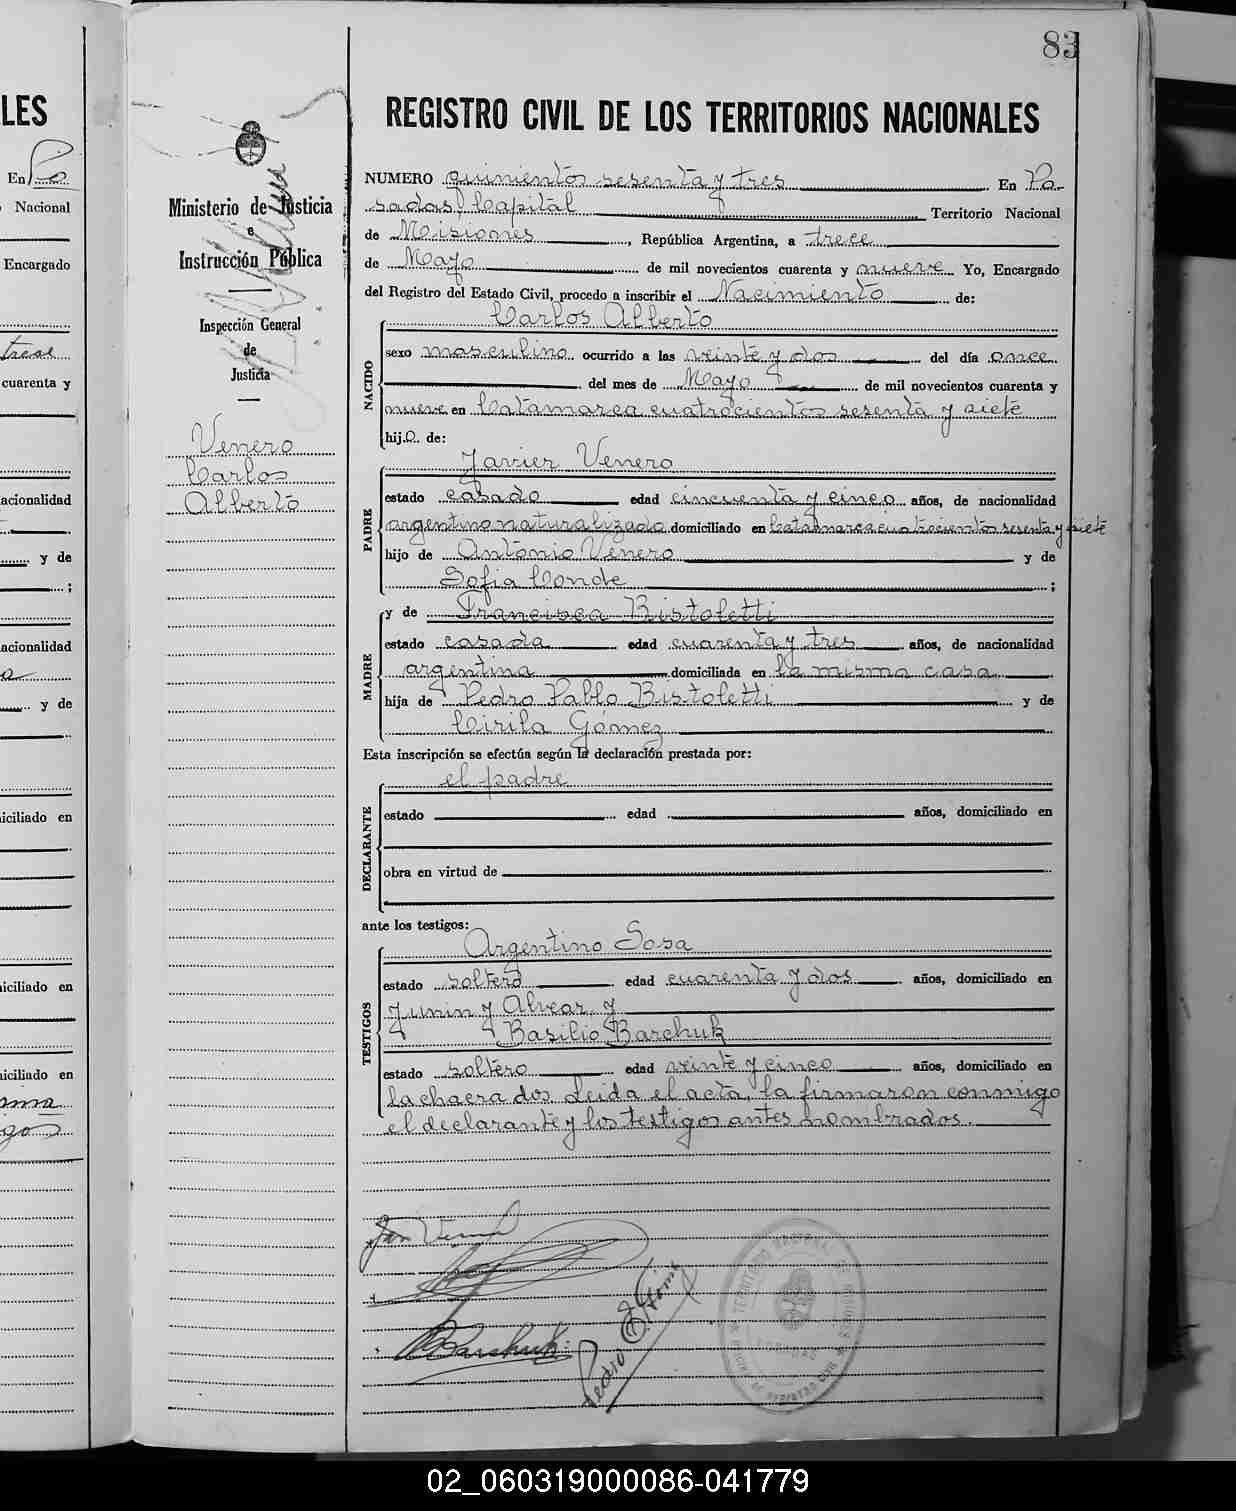 83
LES
REGISTRO CIVIL DE LOS TERRITORIOS NACIONALES
En Po
Nacional
Encargado
cuarenta y
acionalidad
y de
;
acionalidad
y de
iciliado en
iciliado en
iciliado en
Ministerio de Justicia
e
Instrucción Pública
Inspección General
de
Justicia
Venero
Carlos
Alberto
NUMERO quinientos sesenta y tres. En Po-
sadas, Capital Territorio Nacional
de Misiones, República Argentina, a trece
de Mayo de mil novecientos cuarenta y nueve Yo, Encargado
del Registro del Estado Civil, procedo a inscribir el Nacimiento de:
NACIDO
Carlos Alberto
sexo masculino ocurrido a las veinte y dos del día once
del mes de Mayo de mil novecientos cuarenta y
nueve en Catamarca cuatrocientos sesenta y siete
hijo de:
PADRE
Javier Venero
estado casado edad cincuenta y cinco años, de nacionalidad
argentino naturalizado domiciliado en Catamarca cuatrocientos sesenta y siete
hijo de Antonio Venero y de
Sofia Conde ;
MADRE
y de Francisca Bistoletti
estado casada edad cuarenta y tres años, de nacionalidad
argentina domiciliada en la misma casa
hija de Pedro Pablo Bistoletti y de
Cirila Gómez
Esta inscripción se efectúa según la declaración prestada por:
DECLARANTE
el padre
estado edad años, domiciliado en
obra en virtud de
ante los testigos:
TESTIGOS
Argentino Sosa
estado soltero edad cuarenta y dos años, domiciliado en
Junin y Alvear y
Basilio Barchuk
estado soltero edad veinte y cinco años, domiciliado en
la chacra dos. Leida el acta, la firmaron conmigo
el declarante y los testigos antes nombrados.
BBarchuk
Pedro
TERRITORIO NACIONAL DE MISIONES
POSADAS
02_060319000086-041779